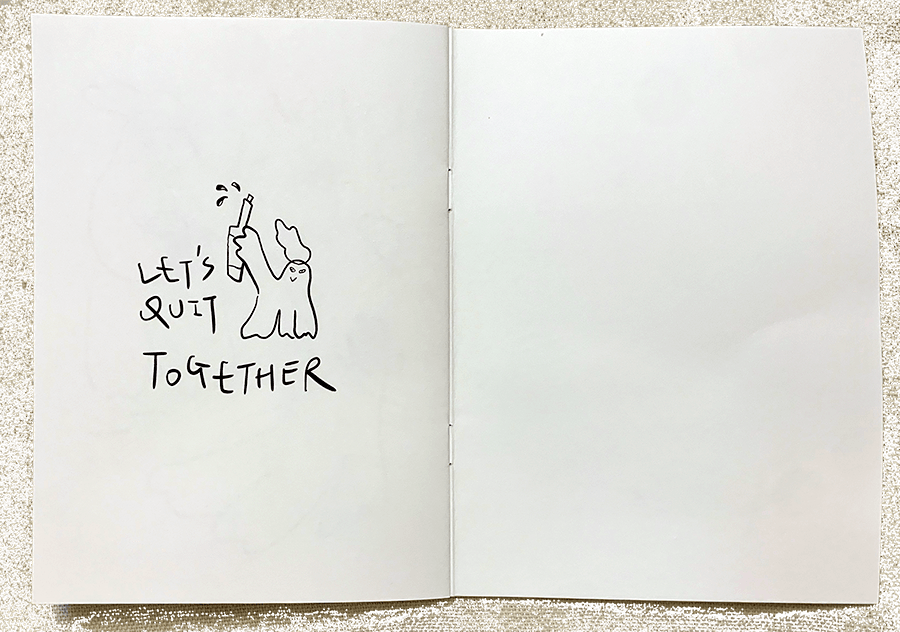 LET'S
QUIT
TOGETHER